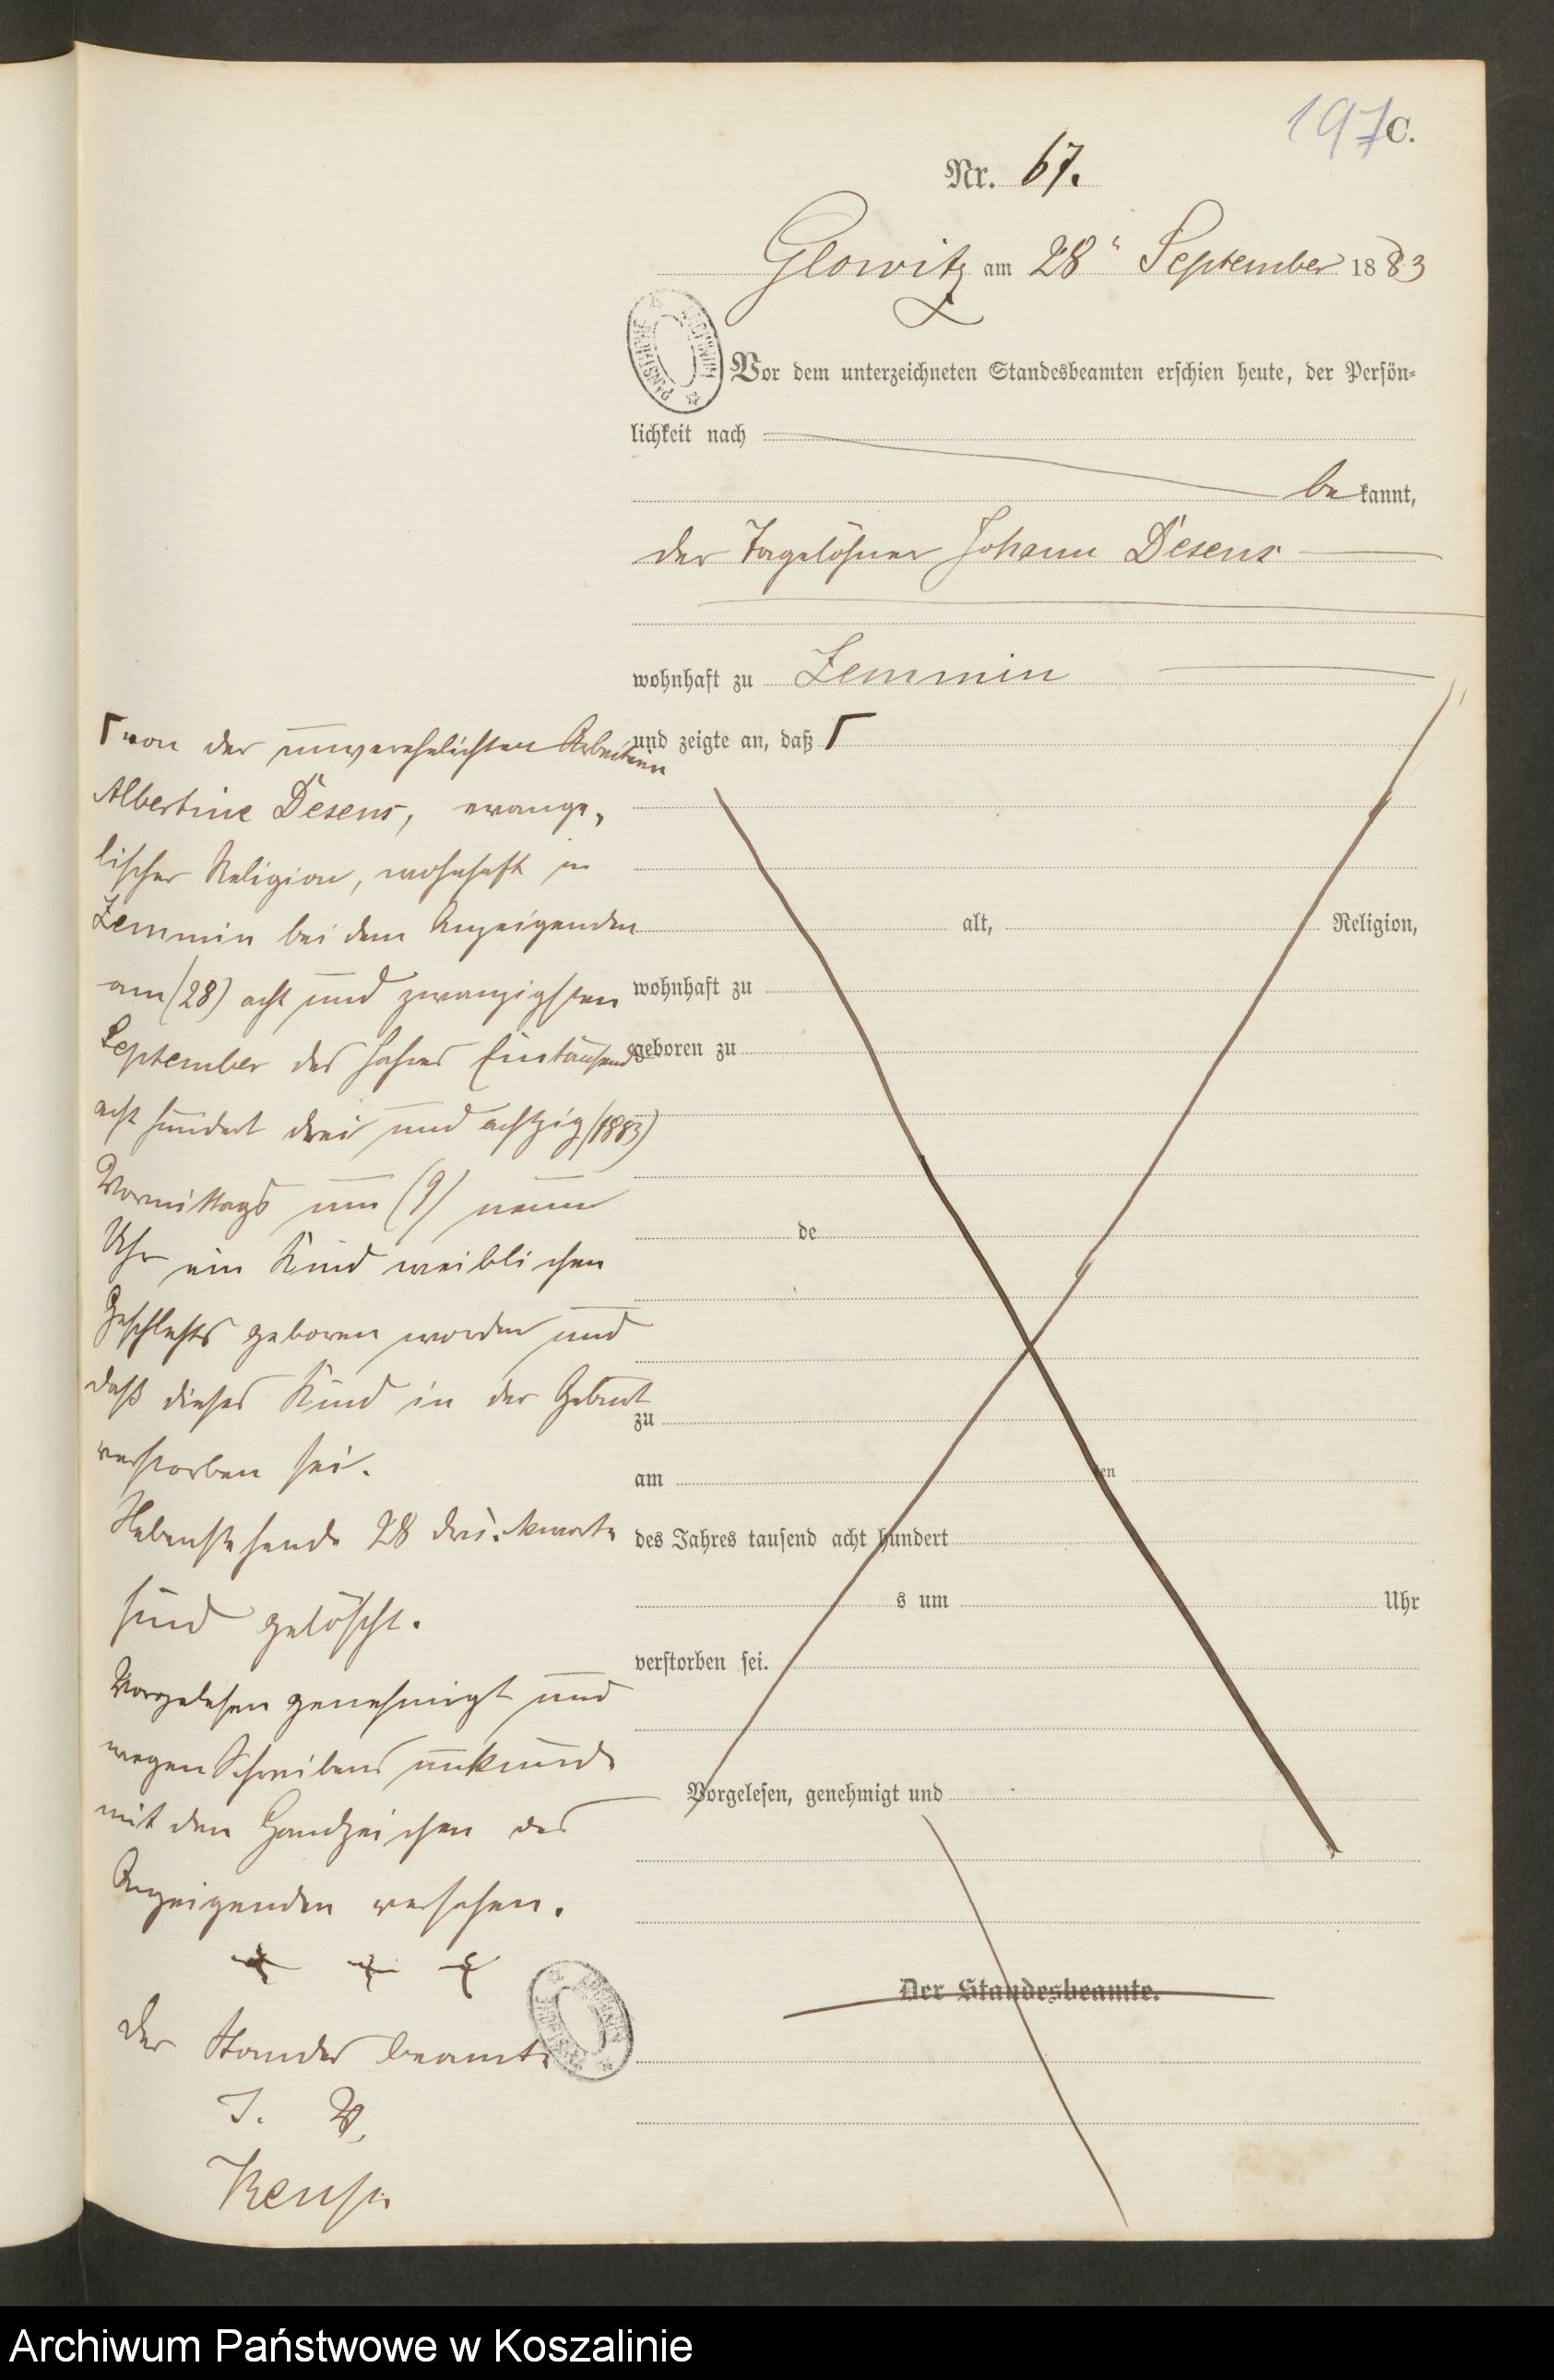 197 C.
Nr. 67.
Glowitz am 28ten September 1883
Vor dem unterzeichneten Standesbeamten erschien heute, der Persön-
lichkeit nach
bekannt,
der Tagelöhner Johann Desens
wohnhaft zu Zemmin
und zeigte an, daß Γ
Γ von der unverehelichten Arbeiterin
Albertine Desens, evange-
lischer Religion, wohnhaft in
Zemmin bei dem Anzeigenden
am (28) acht und zwanzigsten
September des Jahres Eintausend
acht hundert drei und achtzig (1883)
Vormittags um (9) neun
Uhr ein Kind weiblichen
Geschlechts geboren worden und
daß dieses Kind in der Geburt
verstorben sei.
Nebenstehende 28 Druckworte
sind gelöscht.
Vorgelesen genehmigt und
wegen Schreibens unkunde
mit den Handzeichen des
Anzeigenden versehen.
+ + +
Der Standesbeamte
I. V.
alt, Religion,
wohnhaft zu
geboren zu
de
zu
am ten
des Jahres tausend acht hundert
s um Uhr
verstorben sei.
Vorgelesen, genehmigt und
Der Standesbeamte.
Archiwum Państwowe w Koszalinie